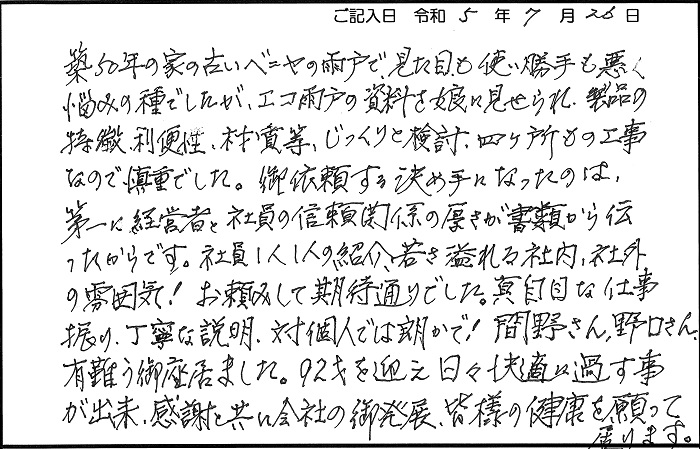 ご記入日 令和 5 年 7 月 26 日
築50年の家の古いベニヤの雨戸で、見た目も使い勝手も悪く
悩みの種でしたが、エコ雨戸の資料を娘に見せられ、製品の
特徴、利便性、材質等、じっくりと検討、四ヶ所もの工事
なので慎重でした。御依頼する決め手になったのは、
第一に経営者と社員の信頼関係の厚さが書類から伝
ったからです。社員1人1人の紹介、若さ溢れる社内、社外
の雰囲気！お頼みして期待通りでした。真自目な仕事
振り、丁寧な説明、対個人では朗かで！間野さん、野口さん、
有難う御座居ました。92才を迎え日々快適に過す事
が出来、感謝と共に会社の御発展、皆様の健康を願って
居ります。